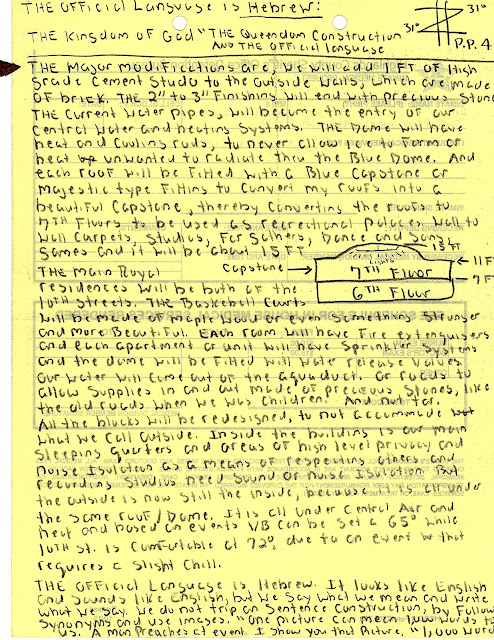 THE OFFICIAL Language is Hebrew:
31°
31°
THE Kingdom of God "THE Queendom Construction
AND THE OFFICIAL language
P.P. 4
THE Major modifications are, we will add 1 FT of High
Grade Cement Studo to the outside walls, which are made
OF brick. THE 2" to 3" Finishing will end with Precious Stone
THE Current Water Pipes, will become the entry of our
Central Water and heating Systems. THE Dome will have
heat and Cooling rods, to never allow ice to Form or
heat unwanted to radiate thru the Blue Dome. And
each roof will be Fitted with a Blue Capstone or
Majestic type Fitting to Convert my roofs into a
beautiful Capstone, thereby Converting the roofs to
7TH Floors to be used as recreational Palaces, Wall to
Wall Carpets, Studios, For Gathers, Dance and Song,
Games and it will be about 15 FT.
15 FT
THE Main Royal
Capstone
7TH Floor
11 FT
6TH Floor
7 FT
residences will be both of the
10th Streets. THE Basketball Courts
will be made of maple wood or even Something Stronger
and more Beautiful. Each room will have Fire extenguisers
and each apartment or unit will have Sprinkler Systems
and the dome will be Fitted will water release values
Our Water will Come out of the aquaduct. Or roads to
allow Supplies in and out made of precious Stones, like
the old roads when we was Children. And not tar.
All the blocks will be redesigned, to not accommade
what we call outside. Inside the building is our main
Sleeping quarters and areas of high level privacy and
noise Isolation as a means of respecting others and
recording Studios need Sound or noise Isolation. But
the outside is now Still the inside, because all under
the Same roof/Dome. It is all under Central Air and
heat and based on events VB can be Set a 65° while
10TH St. is Comfortable at 72° due to an event that
requires a Slight Chill.
THE OFFICIAL Language is Hebrew. It looks like English
and Sounds like English, but we Say what we mean and write
what we Say. We do not trip on Sentence Construction, by Follow
Synonyms and use images. "One picture can mean 1000 words to
us. A man Preaches at event. I show you the Picture. "1000 word